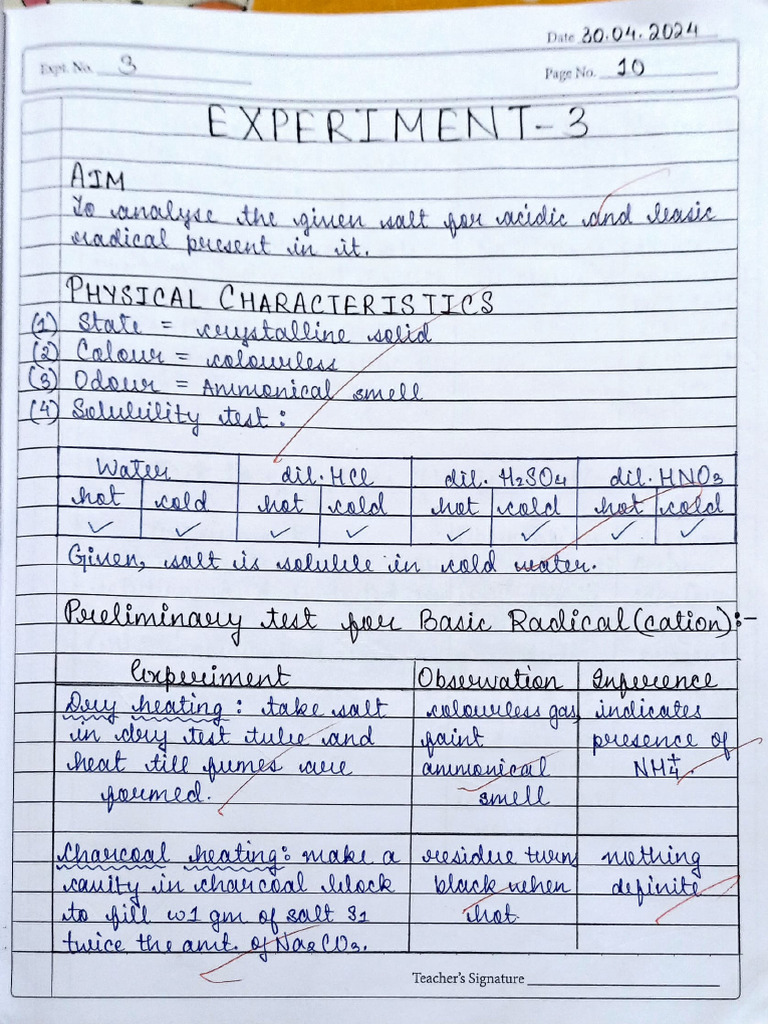 Date 30.04.2024
Expt. No. 3
Page No. 10
EXPERIMENT-3
AIM
To analyse the given salt for acidic and basic
radical present in it.
PHYSICAL CHARACTERISTICS
(1) State = crystalline solid
(2) Colour = colourless
(3) Odour = Ammonical smell
(4) Solubility test :
Water dil. HCl dil. H2SO4 dil. HNO3
hot cold hot cold hot cold hot cold
✓ ✓ ✓ ✓ ✓ ✓ ✓ ✓
Given, salt is soluble in cold water.
Preliminary test for Basic Radical (cation):-
Experiment Observation Inference
Dry heating : take salt colourless gas indicates
in dry test tube and faint presence of
heat till fumes are ammonical NH4+.
formed. smell
Charcoal heating: make a residue turn nothing
cavity in charcoal block black when definite
to fill 1 gm of salt hot
twice the amt. of Na2CO3.
Teacher's Signature